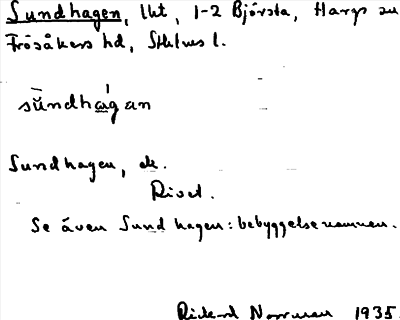 Sundhagen, lht, 1-2 Björsta, Hargs sn
Frösåkers hd, Sthlms l.
sŭndhàgan
Sundhagen, ek.
Rivet.
Se även Sundhagen: bebyggelsenamnen.
Rickard Norrman 1935.